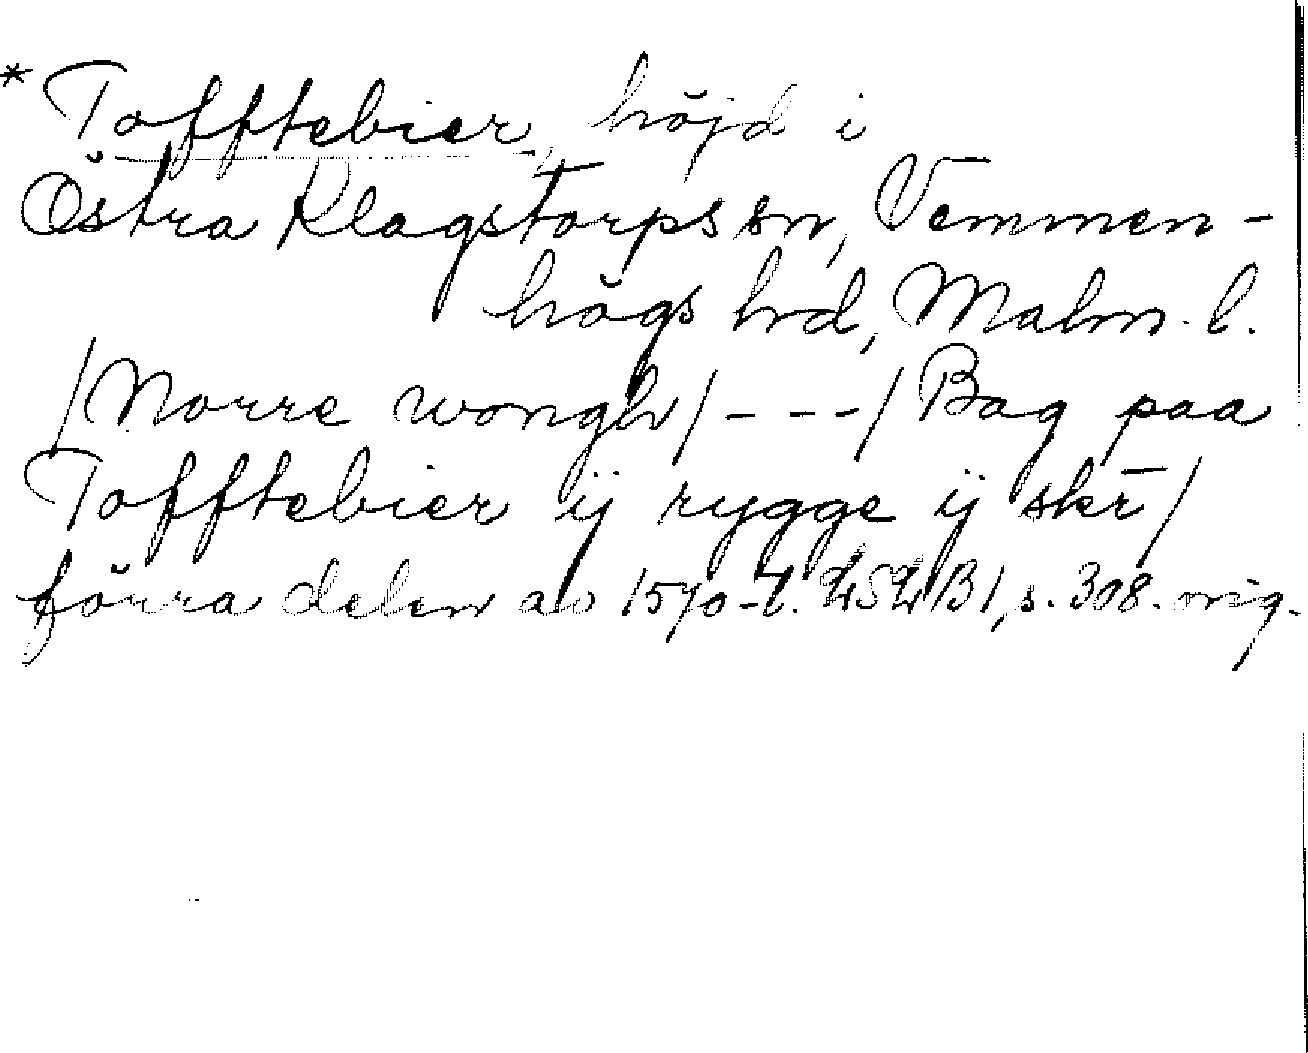 * Tofftebier, höjd i
Östra Klagstorps sn, Vemmen-
högs hd, Malm. l.
/Norre wongh/ - - - / Bag paa
Tofftebier ij rygge ij skr̄ /
förra delen av 1570-t. LSLB1, s. 308. orig.